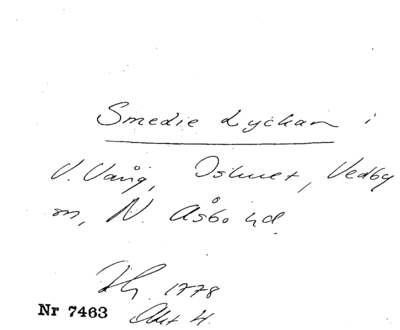 Smedie Lyckan i
V. Vång, Oshuet, Vedby
sn, N. Åsbo hd.
Hg. 1778
Nr 7463 Akt 4.